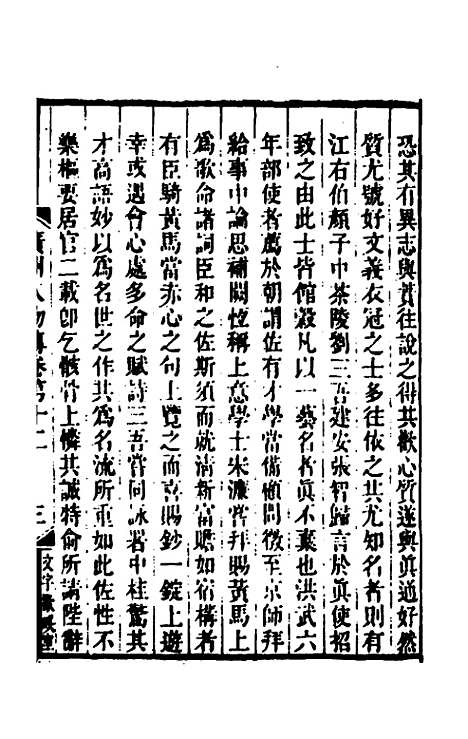 恐其有異志與貫往說之得其歡心質遂與眞通好然
質尤號好文義衣冠之士多往依之其尤知名者則有
江右伯顏子中茶陵劉三吾建安張智歸言於眞使招
致之由此士皆館穀凡以一藝名者眞不棄也洪武六
年部使者薦於朝謂佐有才學當備顧問徵至京師拜
給事中論思補闕恆稱上意學士朱濂嘗拜賜黃馬上
爲歌命諸詞臣和之佐斯須而就淸新富贍如宿構者
有臣騎黃馬當赤心之句上覽之而喜賜鈔一錠上遊
幸或遇會心處多命之賦詩三吾嘗同詠署中桂驚其
才高語妙以爲名世之作其爲名流所重如此佐性不
樂樞要居官二載卽乞骸骨上憐其誠特俞所請陛辭
廣州人物傳卷第十二 三 文字歡娛室